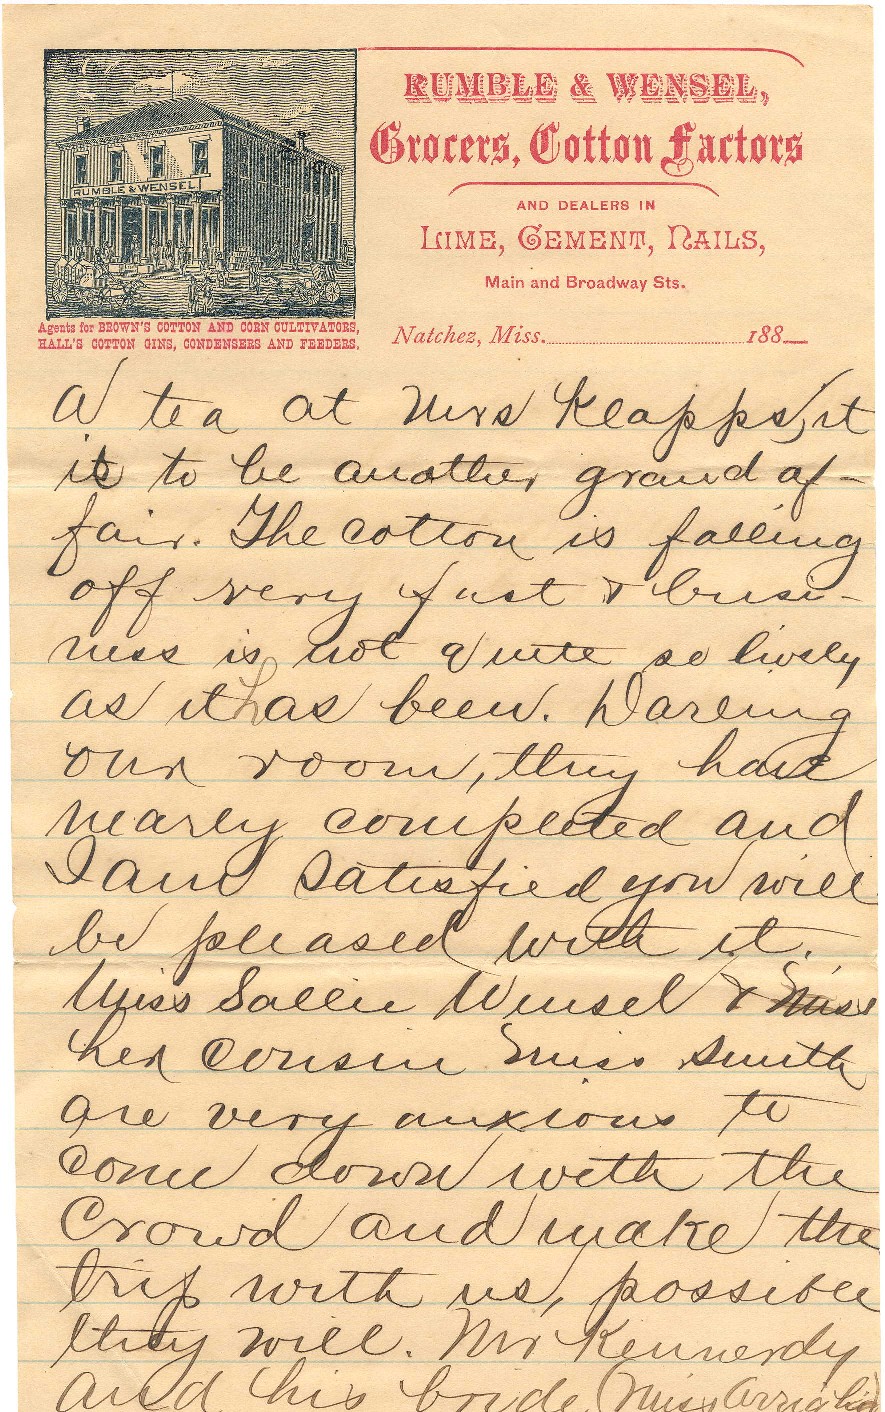 RUMBLE & WENSEL,
Grocers, Cotton Factors
AND DEALERS IN
LIME, CEMENT, NAILS,
Main and Broadway Sts.
RUMBLE & WENSEL
Agents for BROWN'S COTTON AND CORN CULTIVATORS,
HALL'S COTTON GINS, CONDENSERS AND FEEDERS.
Natchez, Miss. 188
A tea at Mrs Klapps, it
is to be another grand af-
fair. The cotton is falling
off very fast & busi-
ness is not quite so lively
as it has been. Darling
our room, they have
nearly completed and
I am satisfied you will
be pleased with it.
Miss Sallie Wensel & Miss
her cousin Miss Smith
are very anxious to
come down with the
crowd and make the
trip with us, possible
they will. Mr Kennerdy
and his bride (Miss